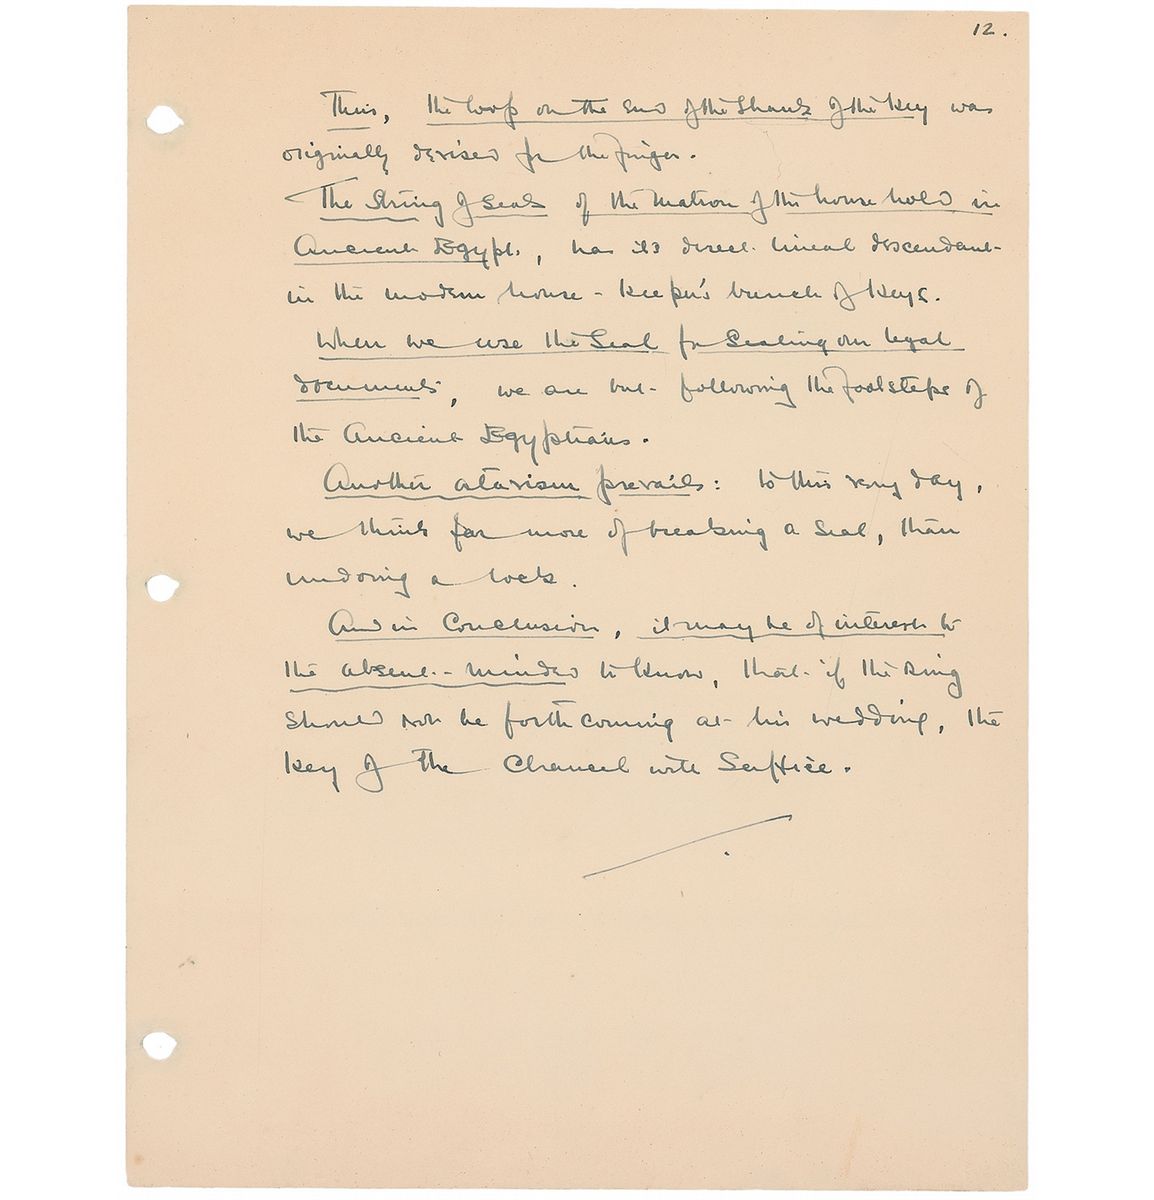 12.
Thus, the loop on the end of the Shank of the Key was
originally devised for the finger.
The String of Seals of the Matron of the house hold in
Ancient Egypt, has its direct lineal descendant
in the modern house-keeper's bunch of keys.
When we use the Seal for Sealing our legal
documents, we are but following the footsteps of
the Ancient Egyptians.
Another atavism prevails: to this very day,
we think far more of breaking a Seal, than
undoing a lock.
And in Conclusion, it may be of interest to
the absent-minded to know, that if the Ring
should not be forthcoming at his wedding, the
key of the Chancel will Suffice.